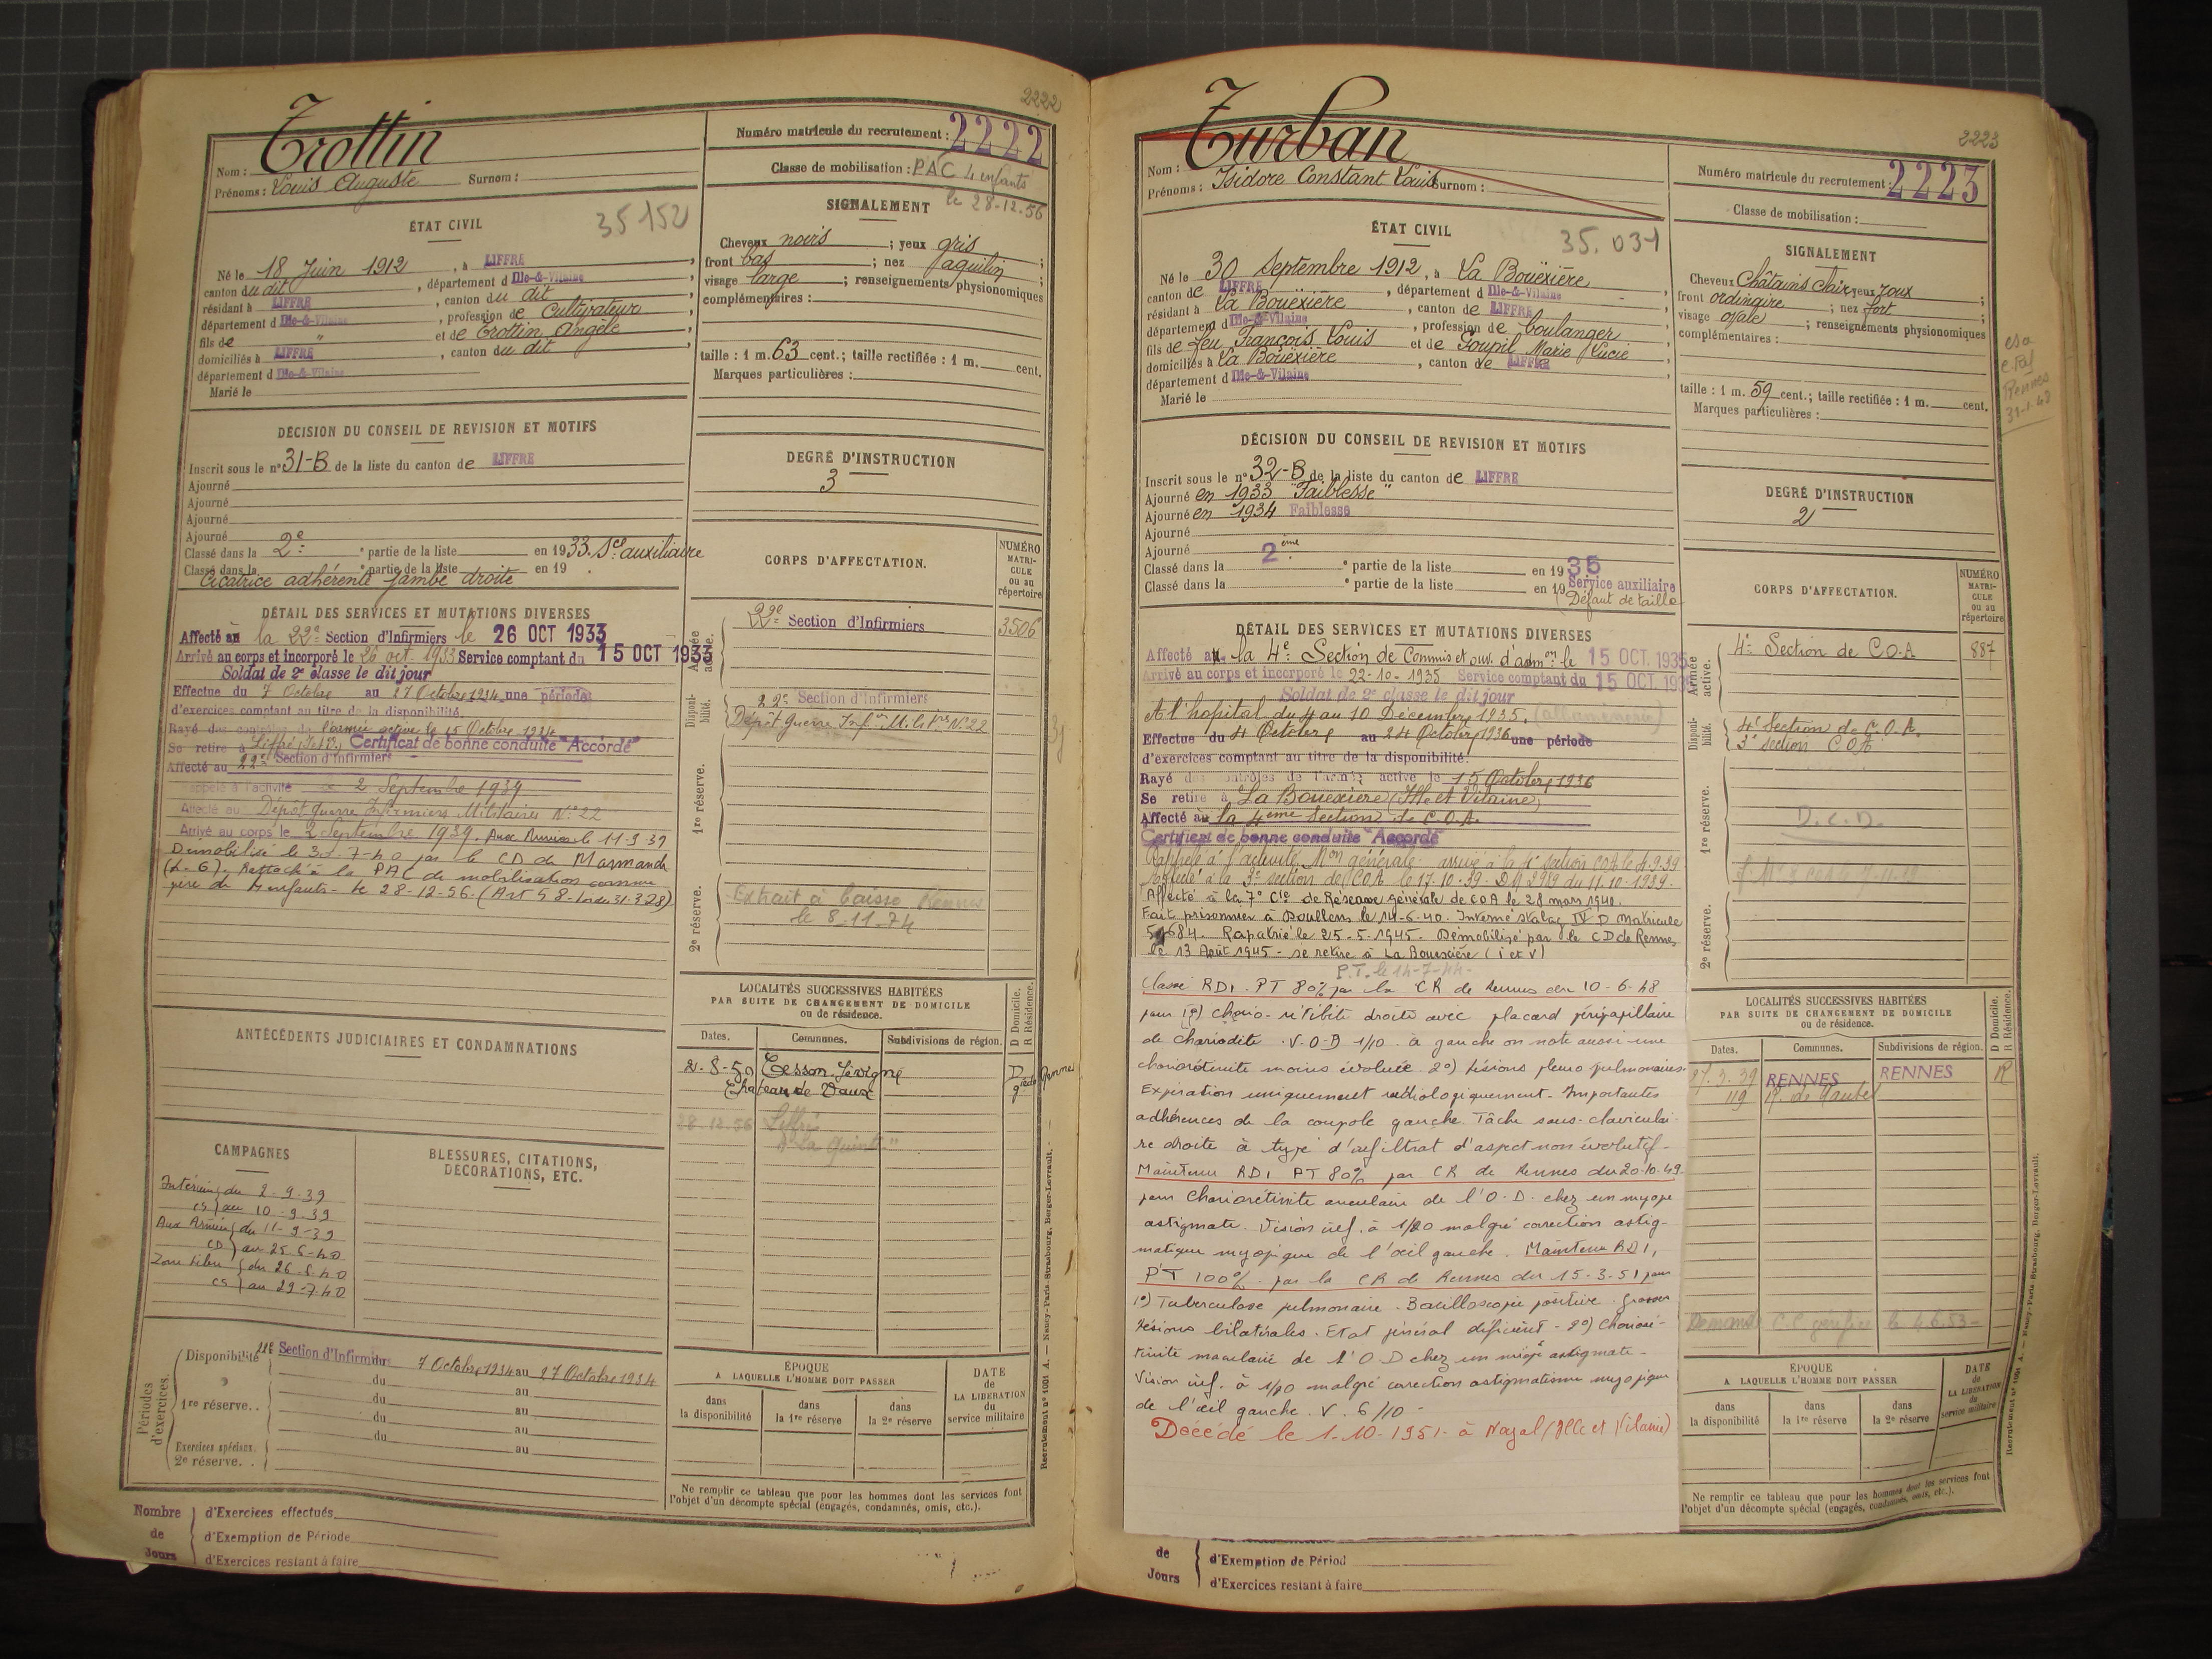 2222
Trottin
Nom :
Prénoms : Louis Auguste Surnom :
Numéro matricule du recrutement : 2222
Classe de mobilisation : PAC 4 enfants
le 28-12-56
ÉTAT CIVIL
35152
Né le 18 Juin 1912, à LIFFRE,
canton du dit, département d Ille-&-Vilaine
résidant à LIFFRE, canton du dit,
département d Ille-&-Vilaine, profession de Cultivateur,
fils de " et de Trottin Angèle,
domiciliés à LIFFRE, canton du dit,
département d Ille-&-Vilaine
Marié le
SIGNALEMENT
Cheveux noirs ; yeux gris ;
front bas ; nez aquilin ;
visage large ; renseignements physionomiques
complémentaires :
taille : 1 m. 63 cent.; taille rectifiée : 1 m. cent.
Marques particulières :
DÉCISION DU CONSEIL DE REVISION ET MOTIFS
Inscrit sous le n° 31-B de la liste du canton de LIFFRE
Ajourné
Ajourné
Ajourné
Ajourné
Classé dans la 2e partie de la liste en 1933. Sce auxiliaire
Classé dans la partie de la liste en 19 .
Cicatrice adhérente jambe droite
DEGRÉ D'INSTRUCTION
3
DÉTAIL DES SERVICES ET MUTATIONS DIVERSES
Affecté au la 22e Section d'Infirmiers le 26 OCT 1933
Arrivé au corps et incorporé le 26 oct. 1933 Service comptant du 15 OCT 1933
Soldat de 2e classe le dit jour
Effectue du 7 Octobre au 27 Octobre 1934 une période
d'exercices comptant au titre de la disponibilité.
Rayé des contrôles de l'armée active le 15 Octobre 1934
Se retire à Liffré (I et V) Certificat de bonne conduite "Accordé"
Affecté au 22e Section d'Infirmiers
Rappelé à l'activité le 2 Septembre 1939
Affecté au Dépôt Guerre Infirmiers Militaires N° 22
Arrivé au corps le 2 Septembre 1939. Aux Armées le 11-9-39
Démobilisé le 30-7-40 par le CD de Marmande
(L-G). Rattaché à la PAC de mobilisation comme
père de 4 enfants - le 28-12-56. (Art 58 - loi du 31-3-28)
CORPS D'AFFECTATION.
NUMÉRO MATRICULE ou au répertoire
Armée active.
22e Section d'Infirmiers 3506
Disponibilité.
22e Section d'Infirmiers
Dépôt Guerre Infers Milres N° 22
1re réserve.
2e réserve.
Extrait à Caisse Rennes
le 8-11-74
ANTÉCÉDENTS JUDICIAIRES ET CONDAMNATIONS
LOCALITÉS SUCCESSIVES HABITÉES
PAR SUITE DE CHANGEMENT DE DOMICILE
ou de résidence.
D Domicile. R Résidence.
Dates. Communes. Subdivisions de région.
2-8-50 Cesson-Sévigné D
Chateau de Vaux
28-12-56 Liffré
"La Quinte"
CAMPAGNES
Intérieur du 2-9-39
CS au 10-9-39
Aux Armées du 11-9-39
CD au 25-6-40
Zone Libre du 26-6-40
CS au 29-7-40
BLESSURES, CITATIONS,
DÉCORATIONS, ETC.
Périodes d'exercices.
Disponibilité 22e Section d'Infirmiers du 7 Octobre 1934 au 27 Octobre 1934
du au
1re réserve. . du au
du au
Exercices spéciaux. du au
2e réserve. .
ÉPOQUE
A LAQUELLE L'HOMME DOIT PASSER
dans la disponibilité
dans la 1re réserve
dans la 2e réserve
DATE de LA LIBÉRATION du service militaire
Ne remplir ce tableau que pour les hommes dont les services font
l'objet d'un décompte spécial (engagés, condamnés, omis, etc.).
Recrutement n° 1001 A. — Nancy-Paris-Strasbourg, Berger-Levrault.
Nombre de Jours
d'Exercices effectués
d'Exemption de Période
d'Exercices restant à faire
2223
Turban
Nom :
Prénoms : Isidore Constant Louis Surnom :
Numéro matricule du recrutement : 2223
Classe de mobilisation :
ÉTAT CIVIL
35.031
Né le 30 Septembre 1912, à La Bouëxière,
canton de LIFFRE, département d Ille-&-Vilaine
résidant à La Bouëxière, canton de LIFFRE,
département d Ille-&-Vilaine, profession de boulanger,
fils de feu François Louis et de Goupil Marie Lucie,
domiciliés à La Bouëxière, canton de LIFFRE,
département d Ille-&-Vilaine
Marié le
SIGNALEMENT
Cheveux Châtains clair yeux roux ;
front ordinaire ; nez fort ;
visage ovale ; renseignements physionomiques
complémentaires :
taille : 1 m. 59 cent.; taille rectifiée : 1 m. cent.
Marques particulières :
Rennes
31-1-48
DÉCISION DU CONSEIL DE REVISION ET MOTIFS
Inscrit sous le n° 32-B de la liste du canton de LIFFRE
Ajourné en 1933 "Faiblesse"
Ajourné en 1934 Faiblesse
Ajourné
Ajourné
Classé dans la 2ème partie de la liste en 1935
Classé dans la partie de la liste en 19 Service auxiliaire
(Défaut de taille
DEGRÉ D'INSTRUCTION
2
DÉTAIL DES SERVICES ET MUTATIONS DIVERSES
Affecté au la 4e Section de Commis et ouv. d'admon le 15 OCT. 1935
Arrivé au corps et incorporé le 22-10-1935 Service comptant du 15 OCT. 1935
Soldat de 2e classe le dit jour
A l'hopital du 4 au 10 Décembre 1935.
Effectue du 4 Octobre au 24 Octobre 1936 une période
d'exercices comptant au titre de la disponibilité.
Rayé des contrôles de l'armée active le 15 Octobre 1936
Se retire à La Bouexière (Ille et Vilaine)
Affecté au la 4eme Section de C.O.A.
Certificat de bonne conduite "Accordé"
Rappelé à l'activité Mon générale. arrivé à la 4e section COA le 4-9-39
Affecté à la 3e section de COA le 17-10-39 - DM 2989 du 11-10-1939.
Affecté à la 7e Cie de Réserve générale de COA le 28 mars 1940.
Fait prisonnier à Doullens le 14-6-40. Interné Stalag IV D Matricule
Rapatrié le 25-5-1945. Démobilisé par le CD de Rennes
le 13 Août 1945 - se retire à La Bouexière (I et V)
P.T. le 14-7-44-
Classé RD1. PT 80% par la CR de Rennes du 10-6-48
pour 1°) chorio-rétinite droite avec placard péripapillaire
de chorïodite. V.O.D 1/10. à gauche on note aussi une
choriorétinite moins évoluée. 2°) lésions pleuro pulmonaires.
Expiration uniquement radiologiquement. Importantes
adhérences de la coupole gauche. Tâche sous-claviculai-
re droite à type d'infiltrat d'aspect non évolutif -
Maintenu RD1 PT 80% par CR de Rennes du 20-10-49.
pour Choriorétinite maculaire de l'O.D. chez un myope
astigmate. Vision inf. à 1/20 malgré correction astig-
matique myopique de l'œil gauche. Maintenu RD1,
PT 100% par la CR de Rennes du 15-3-51 pour
1°) Tuberculose pulmonaire. Bacilloscopie positive. grosses
lésions bilatérales. Etat général déficient - 2°) Chorioré-
tinite maculaire de l'O.D chez un myope astigmate -
Vision inf. à 1/20 malgré correction astigmatisme myopique
de l'œil gauche. V. 6/10 -
Décédé le 1-10-1951- à Noyal (Ille et Vilaine)
CORPS D'AFFECTATION.
NUMÉRO MATRICULE ou au répertoire
Armée active.
4e Section de C.O.A 887
Disponibilité.
4e Section de C.O.A.
3e section C.O.A
1re réserve.
D.C.D.
2e réserve.
LOCALITÉS SUCCESSIVES HABITÉES
PAR SUITE DE CHANGEMENT DE DOMICILE
ou de résidence.
D Domicile. R Résidence.
Dates. Communes. Subdivisions de région.
27.3.39 RENNES RENNES R
119 R. de Nantes
ÉPOQUE
A LAQUELLE L'HOMME DOIT PASSER
dans la disponibilité
dans la 1re réserve
dans la 2e réserve
DATE de LA LIBÉRATION du service militaire
Ne remplir ce tableau que pour les hommes dont les services font
l'objet d'un décompte spécial (engagés, condamnés, omis, etc.).
Recrutement n° 1001 A. — Nancy-Paris-Strasbourg, Berger-Levrault.
de Jours
d'Exemption de Périod
d'Exercices restant à faire